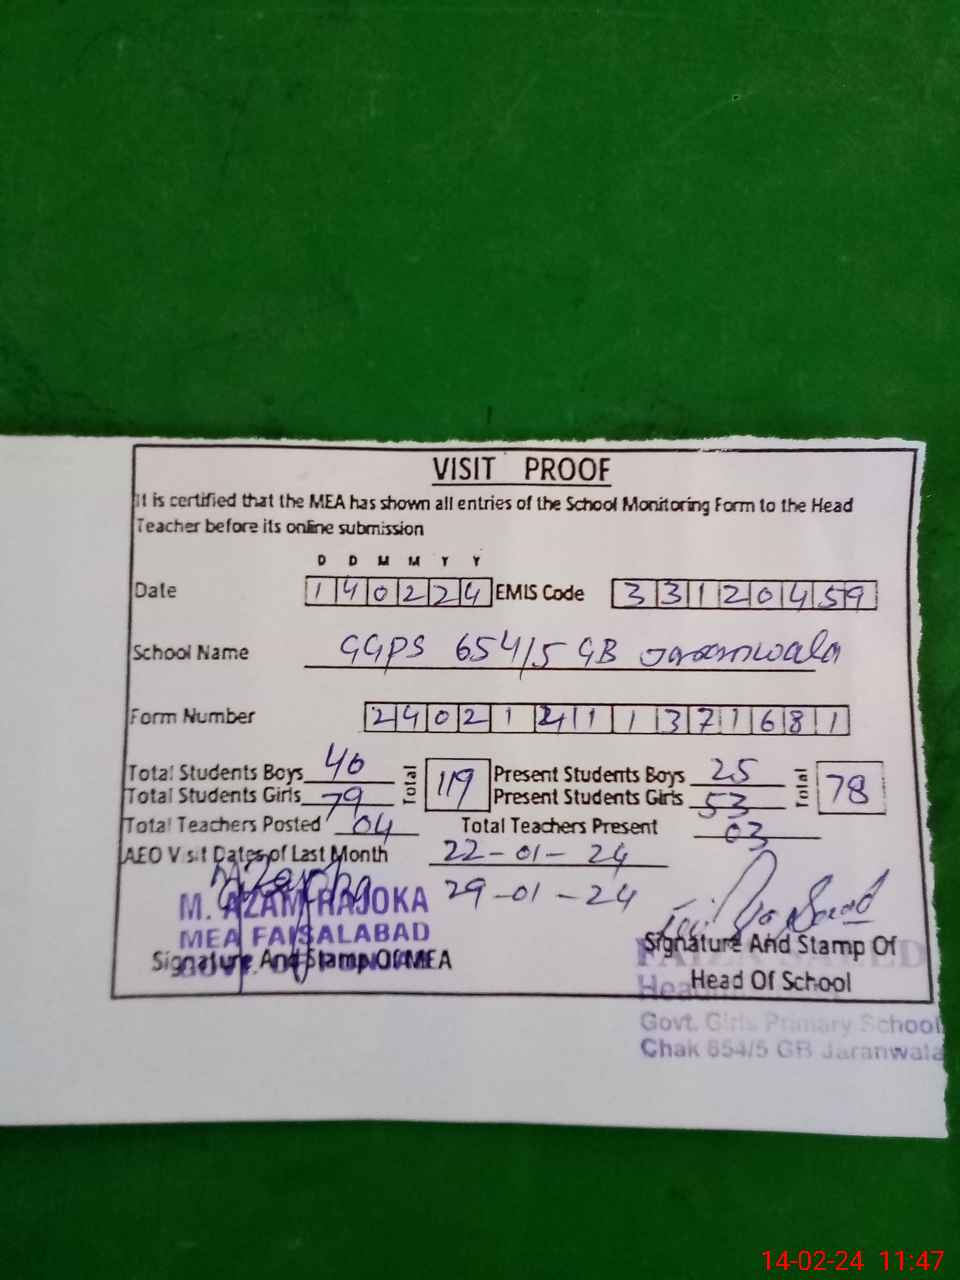 VISIT PROOF
It is certified that the MEA has shown all entries of the School Monitoring Form to the Head
Teacher before its online submission
D D M M Y Y
Date 1 4 0 2 2 4 EMIS Code 3 3 1 2 0 4 5 9
School Name GGPS 654/5 GB Jaranwala
Form Number 2 4 0 2 1 4 1 1 3 7 1 6 8 1
Total Students Boys 40 Total 119 Present Students Boys 25 Total 78
Total Students Girls 79 Present Students Girls 53
Total Teachers Posted 04 Total Teachers Present 03
AEO Visit Dates of Last Month 22-01-24
29-01-24
M. AZAM RAJOKA
MEA FAISALABAD
Signature And Stamp Of MEA
Signature And Stamp Of
Head Of School
Govt. Girls Primary School
Chak 654/5 GB Jaranwala
14-02-24 11:47